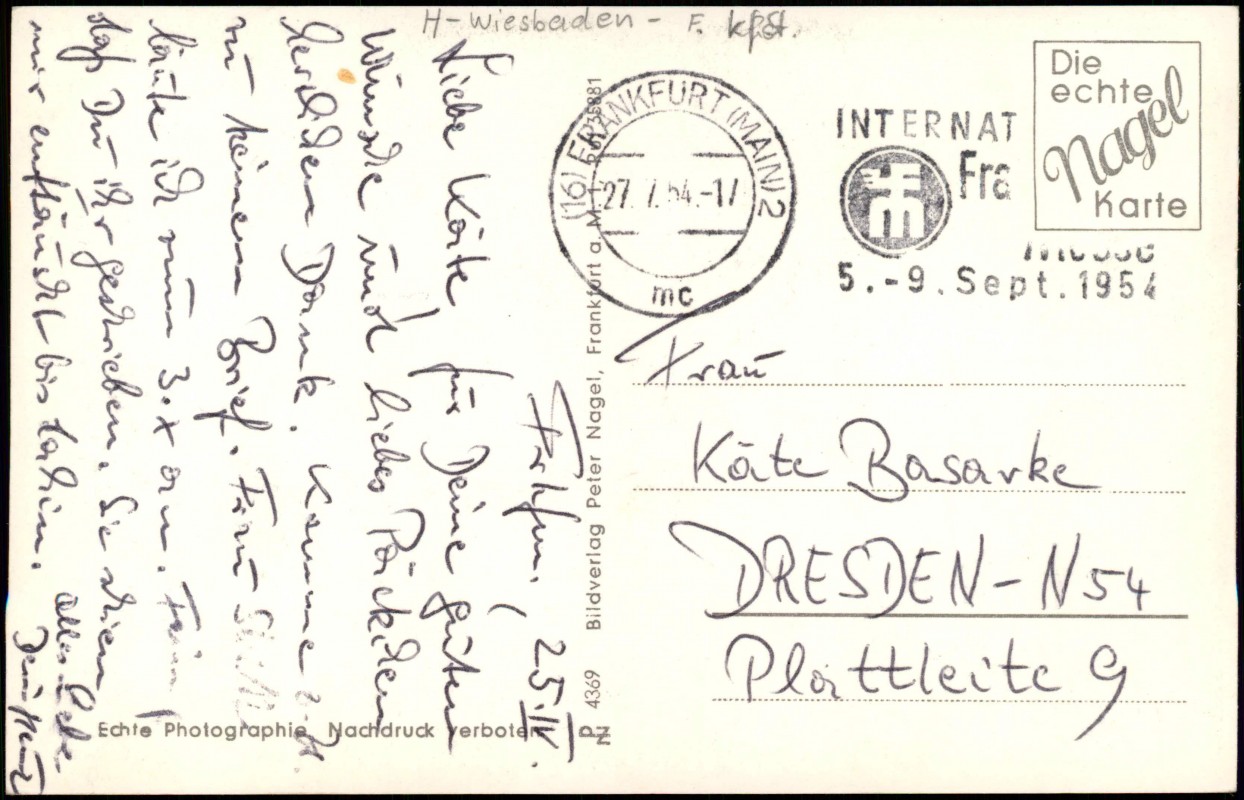 H-Wiesbaden - F. kpst.
Frkfm., 25.IV.
Liebe Käte, für Deine guten
Wünsche und liebes Päckchen
herzlichen Dank. Komme z. Zt.
zu keinem Brief. Frau
läute ich zum 3.x an.
daß Du ihr geschrieben. Sie schien
mir enttäuscht bis dahin. alles Liebe
Dein
Echte Photographie. Nachdruck verboten
4369
Bildverlag Peter Nagel, Frankfurt a. M.
PN
(16) FRANKFURT (MAIN) 2
27.7.54.-17
mc
INTERNAT
Fra
5.-9. Sept. 1954
Die
echte
Nagel
Karte
Frau
Käte Basarke
DRESDEN-N54
Plattleite 9